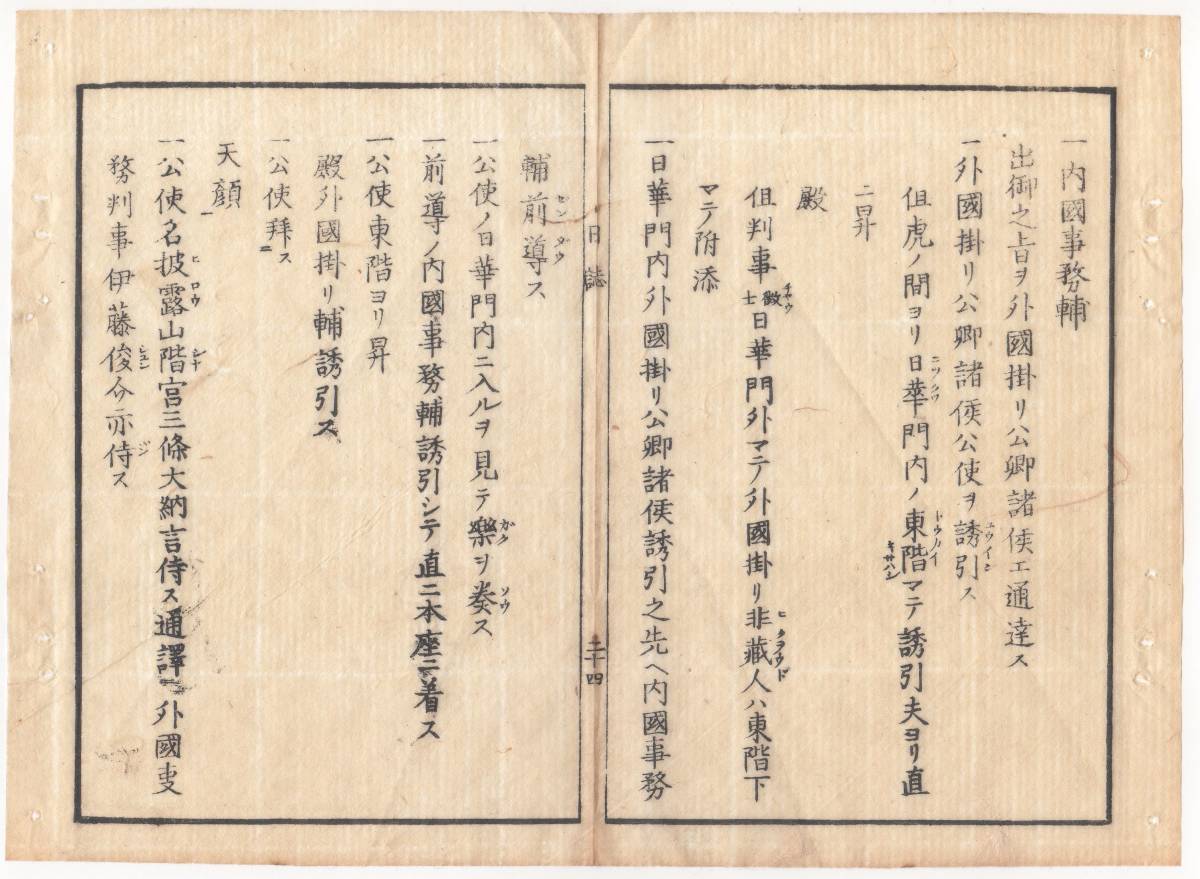 一内國事務輔
出御之旨ヲ外國掛リ公卿諸侯エ通達ス
一外國掛リ公卿諸侯公使ヲ誘引ス
但虎ノ間ヨリ日華門内ノ東階マテ誘引夫ヨリ直
ニ昇
殿
但判事徴士日華門外マテ外國掛リ非藏人ハ東階下
マテ附添
一日華門内外國掛リ公卿諸侯誘引之先ヘ内國事務
日誌
二十四
輔前導ス
一公使ノ日華門内ニ入ルヲ見テ樂ヲ奏ス
一前導ノ内國事務輔誘引シテ直ニ本座ニ着ス
一公使東階ヨリ昇
殿外國掛リ輔誘引ス
一公使拜ス
天顔
一公使名披露山階宮三條大納言侍ス通譯ニ外國事
務判事伊藤俊介亦侍ス